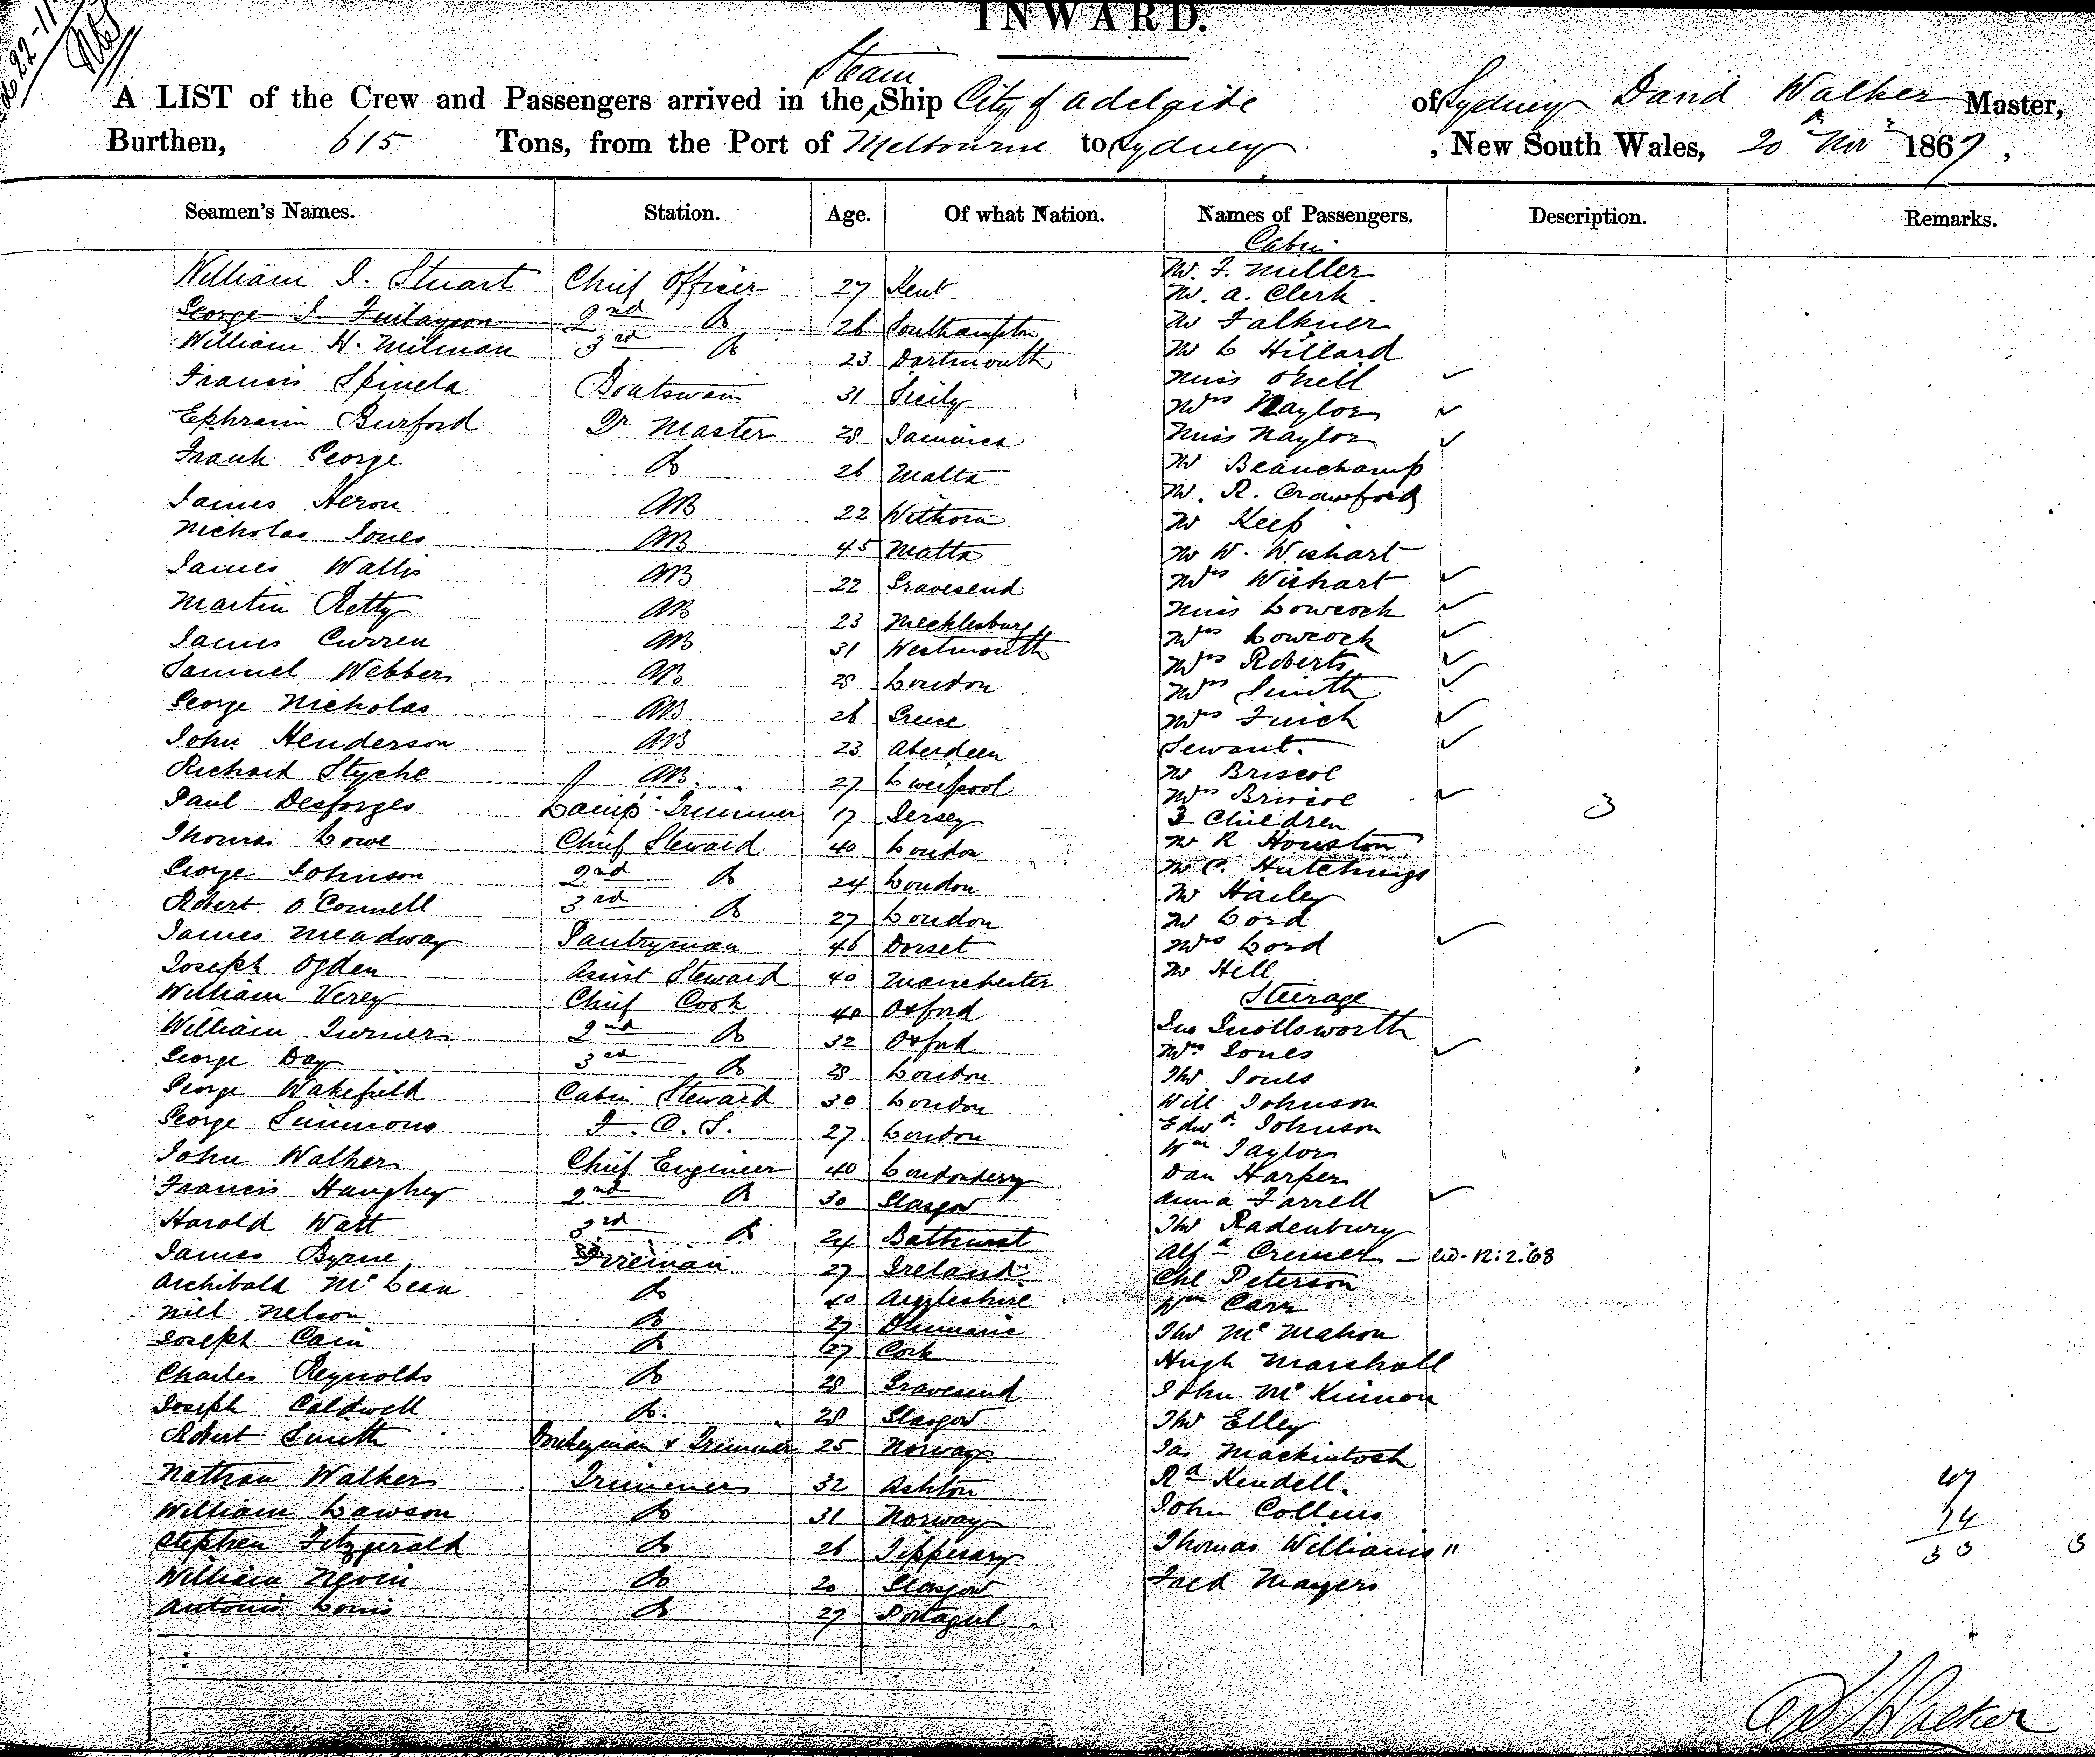 22-11
INWARD.
Steam
A LIST of the Crew and Passengers arrived in the Ship City of Adelaide of Sydney David Walker Master,
Burthen, 615 Tons, from the Port of Melbourne to Sydney, New South Wales, 20th Novr 1867,
Seamen's Names. Station. Age. Of what Nation. Names of Passengers. Description. Remarks.
Cabin
William I. Stuart Chief Officer 27 Kent Mr. F. Miller
George S. Finlayson 2nd Do 26 Southampton Mr. A. Clerk
William H. Milman 3rd Do 23 Dartmouth Mr Falkner
Mr C Hillard
Francis Spinela Boatswain 31 Sicily Miss Oneil
Ephraim Burford Qr Master 28 Jamaica Mrs Naylor
Miss Naylor
Frank George Do 26 Malta Mr Beauchamp
James Heron AB 22 Withorn Mr. R. Crawford
Mr Keep
Nicholas Jones AB 45 Malta Mr W. Wishart
James Wallis AB 22 Gravesend Mrs Wishart
Martin Retty AB 23 Mecklesburg Miss Lowcock
James Curren AB 31 Westmouth Mrs Lowcock
Mrs Roberts
Samuel Webber AB 28 London Mrs Smith
George Nicholas AB 26 Greece Mrs Finch
John Henderson AB 23 Aberdeen Servant.
Richard Styche AB 27 Liverpool Mr Briscoe
Mrs Briscoe
Paul Desforges Lamp Trimmer 17 Jersey 3 Children 3
Thomas Lowe Chief Steward 40 London Mr R Houston
George Johnson 2nd Do 24 London Mr C. Hutchings
Mr Hailey
Robert O'Connell 3rd Do 27 London Mr Lord
James Meadway Pantryman 46 Dorset Mrs Lord
Joseph Ogden Assist Steward 40 Manchester Mr Hill
Steerage
William Verey Chief Cook 40 Oxford
William Turner 2nd Do 32 Oxford Mrs Jones
George Day 3rd Do 28 London Thos Jones
George Wakefield Cabin Steward 30 London Will Johnson
George Simmons F. C. S. 27 London Edwd. Johnson
Wm Taylor
John Walker Chief Engineer 40 Londonderry Dan Harper
Francis Haughey 2nd Do 30 Glasgow Anna Farrell
Harold Watt 3rd Do 24 Bathurst Thos Radenbury
James Byrne Fireman 27 Ireland Alfd Cremer
Archibald Mc Lean Do 40 Argyleshire Chl Peterson
Wm Carr
Niel Nelson Do 27 Thos Mc Mahon
Joseph Cain Do 27 Cork Hugh Marshall
Charles Reynolds Do 28 Gravesend John Mc Kinnon
Joseph Caldwell Do. 28 Glasgow Thos Elley
Robert Smith Donkeyman & Trimmer 25 Norway Jas Mackintosh
Nathan Walker Trimmer 32 Ashton Rd Kendell.
William Lawson Do 31 Norway John Collins
Stephen Fitzgerald Do 26 Tipperary Thomas Williams "
William Nevin Do 20 Glasgow Fred Mayers
Antonio Louis Do 27 Portagul